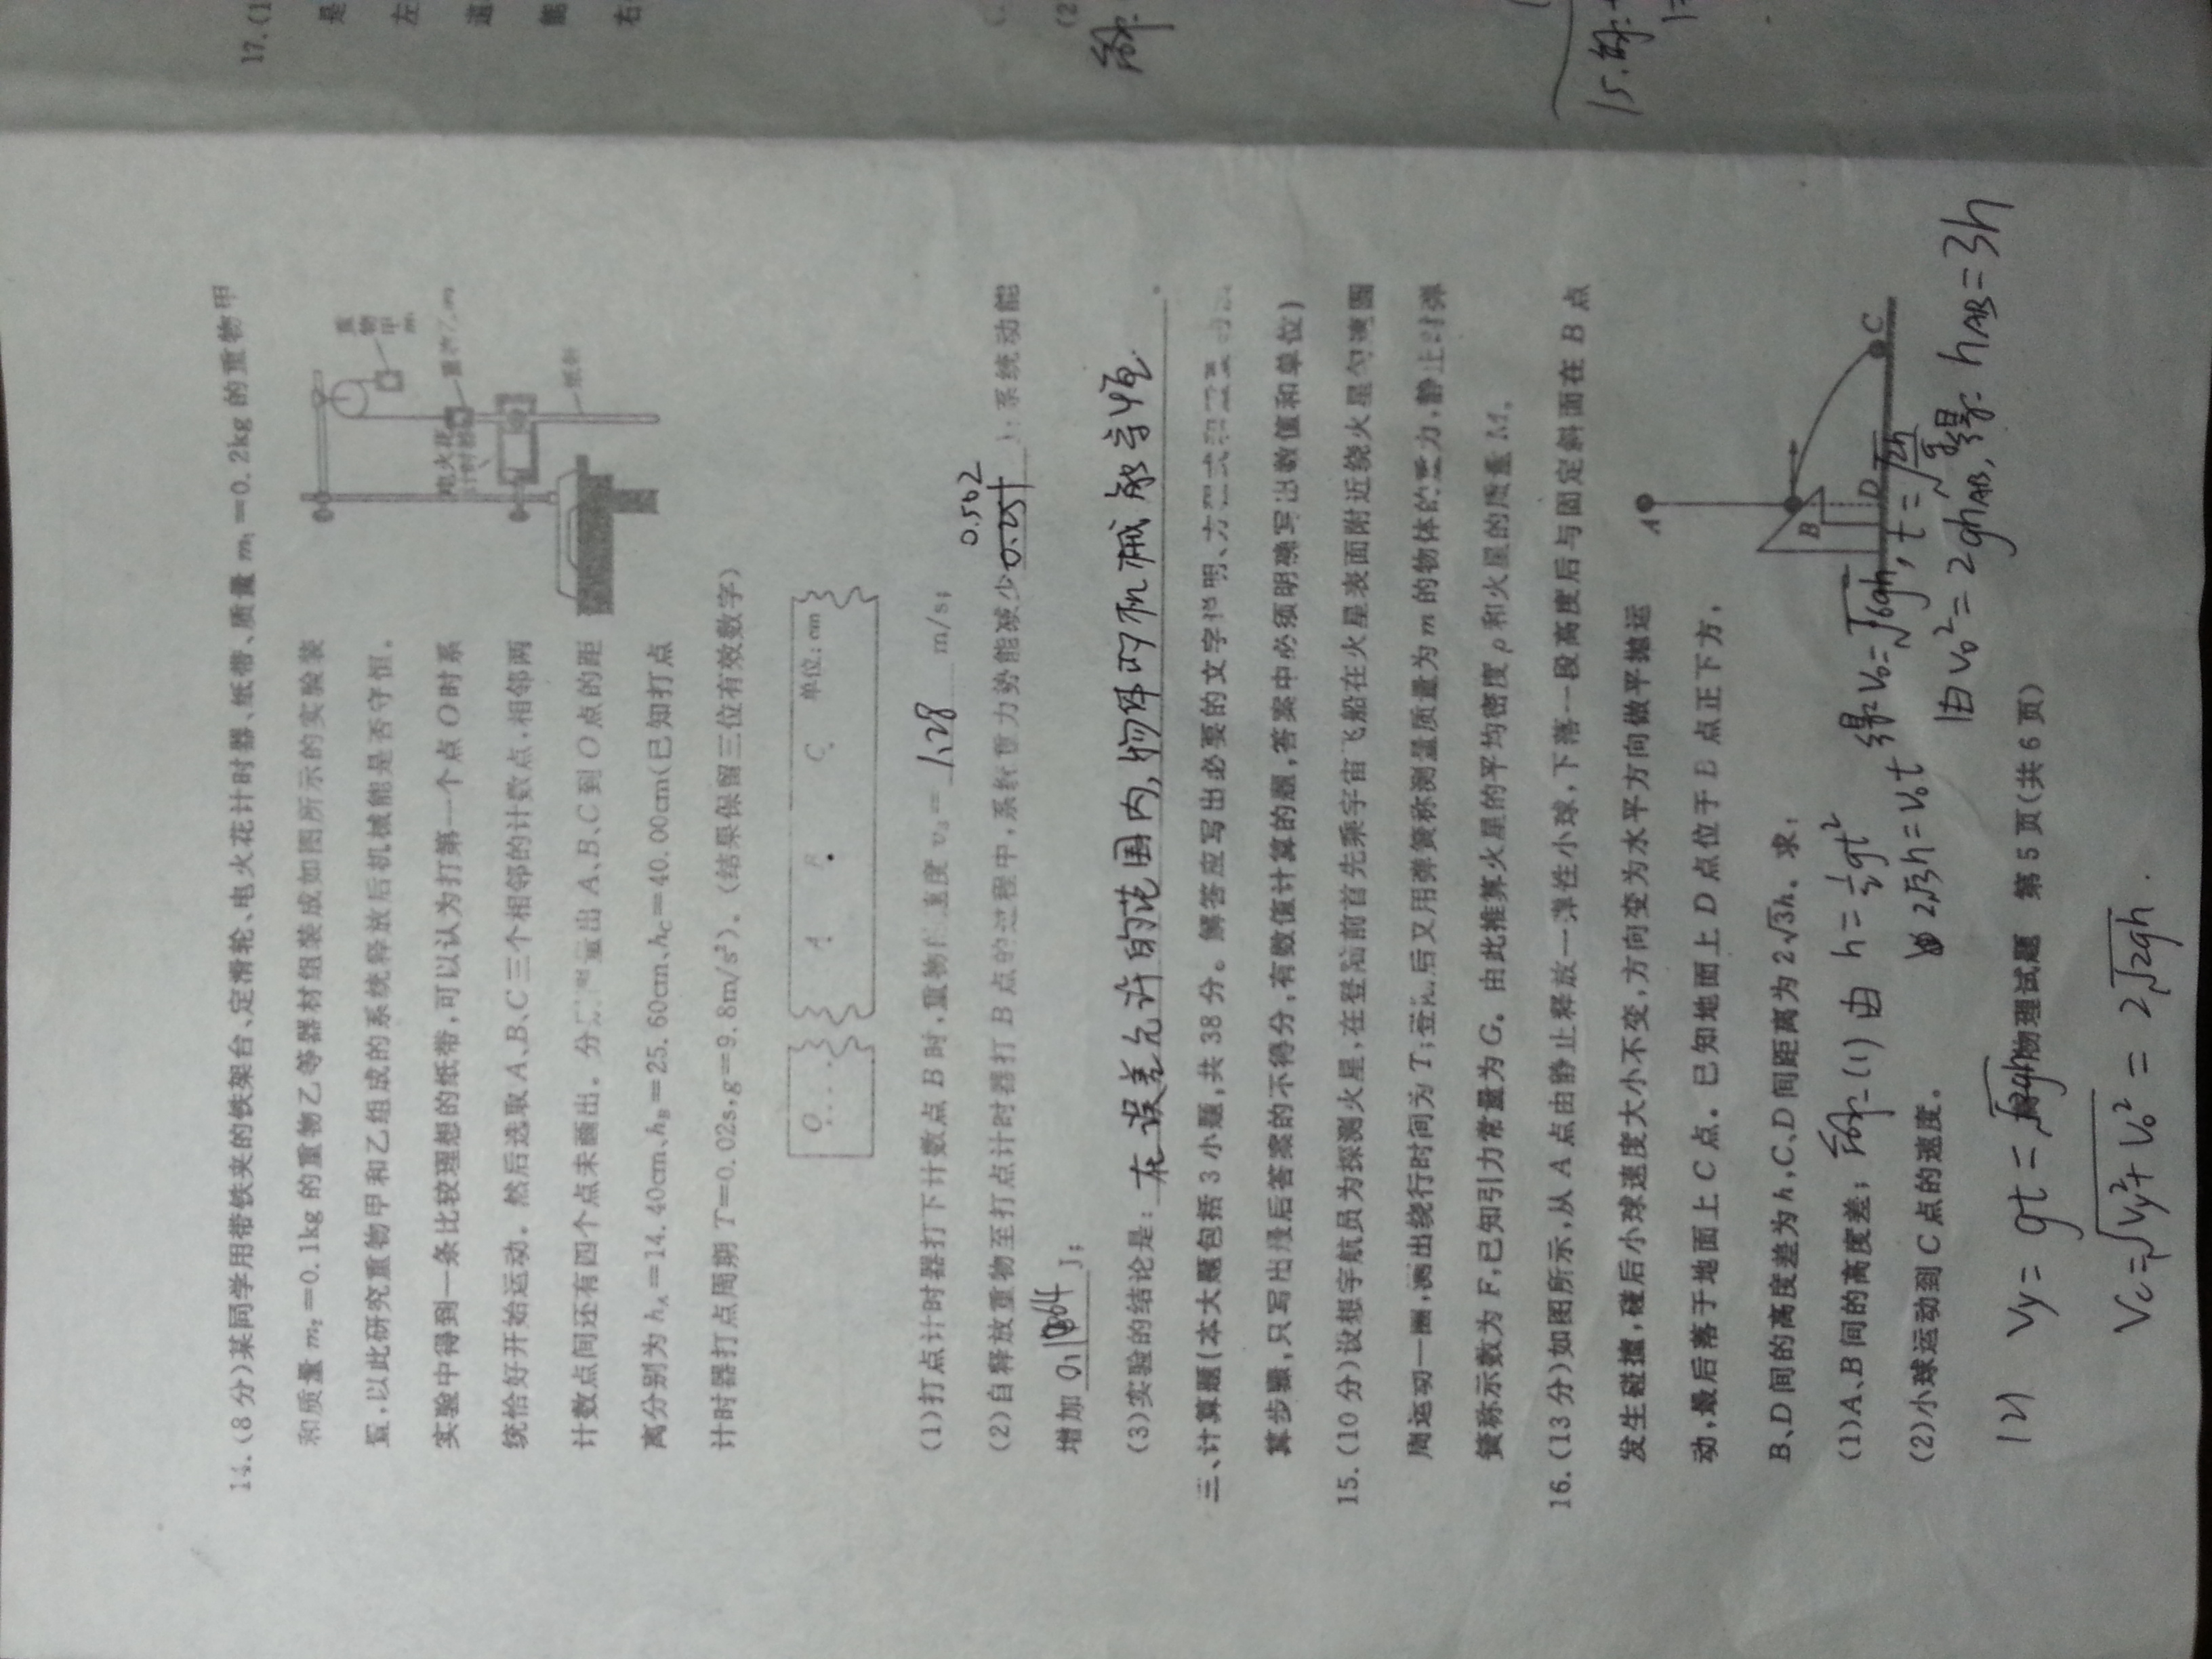 14.(8分)某同学用带铁夹的铁架台、定滑轮、电火花计时器、纸带、质量 m₁=0.2kg 的重物甲
和质量 m₂=0.1kg 的重物乙等器材组装成如图所示的实验装
置,以此研究重物甲和乙组成的系统释放后机械能是否守恒。
实验中得到一条比较理想的纸带,可以认为打第一个点 O 时系
统恰好开始运动。然后选取 A、B、C 三个相邻的计数点,相邻两
计数点间还有四个点未画出。分别测量出 A、B、C 到 O 点的距
离分别为 hA=14.40cm、hB=25.60cm、hC=40.00cm(已知打点
计时器打点周期 T=0.02s,g=9.8m/s²)。(结果保留三位有效数字)
重物甲 m₁
电火花
计时器
重物乙 m₂
纸带
O A B C 单位:cm
(1)打点计时器打下计数点 B 时,重物的速度 vB= 1.28 m/s;
0.502
(2)自释放重物至打点计时器打 B 点的过程中,系统重力势能减少 0.251 J;系统动能
增加 J;
(3)实验的结论是: 在误差允许的范围内,物体的机械能守恒.
三、计算题(本大题包括 3 小题,共 38 分。解答应写出必要的文字说明、方程式和重要的演
算步骤,只写出最后答案的不得分,有数值计算的题,答案中必须明确写出数值和单位)
15.(10分)设想宇航员为探测火星,在登陆前首先乘宇宙飞船在火星表面附近绕火星匀速圆
周运动一圈,测出绕行时间为 T;登陆后又用弹簧称测量质量为 m 的物体的重力,静止时弹
簧称示数为 F,已知引力常量为 G。由此推算火星的平均密度 ρ 和火星的质量 M。
16.(13分)如图所示,从 A 点由静止释放一弹性小球,下落一段高度后与固定斜面在 B 点
发生碰撞,碰后小球速度大小不变,方向变为水平方向做平抛运
动,最后落于地面上 C 点。已知地面上 D 点位于 B 点正下方,
B、D 间的高度差为 h,C、D 间距离为 2√3h。求:
A
B
D
C
(1)A、B 间的高度差; 解:(1) 由 h=½gt²
2√3h=V₀t 得:V₀=√6gh, t=√(2h/g)
(2)小球运动到 C 点的速度。
由V₀²=2ghAB, 得: hAB=3h
(2) Vy=gt=√2gh
物理试题 第 5 页(共 6 页)
Vc=√(Vy²+V₀²) = 2√2gh.
17.(1
是
左
道
能
右
(2
解:
15.解: